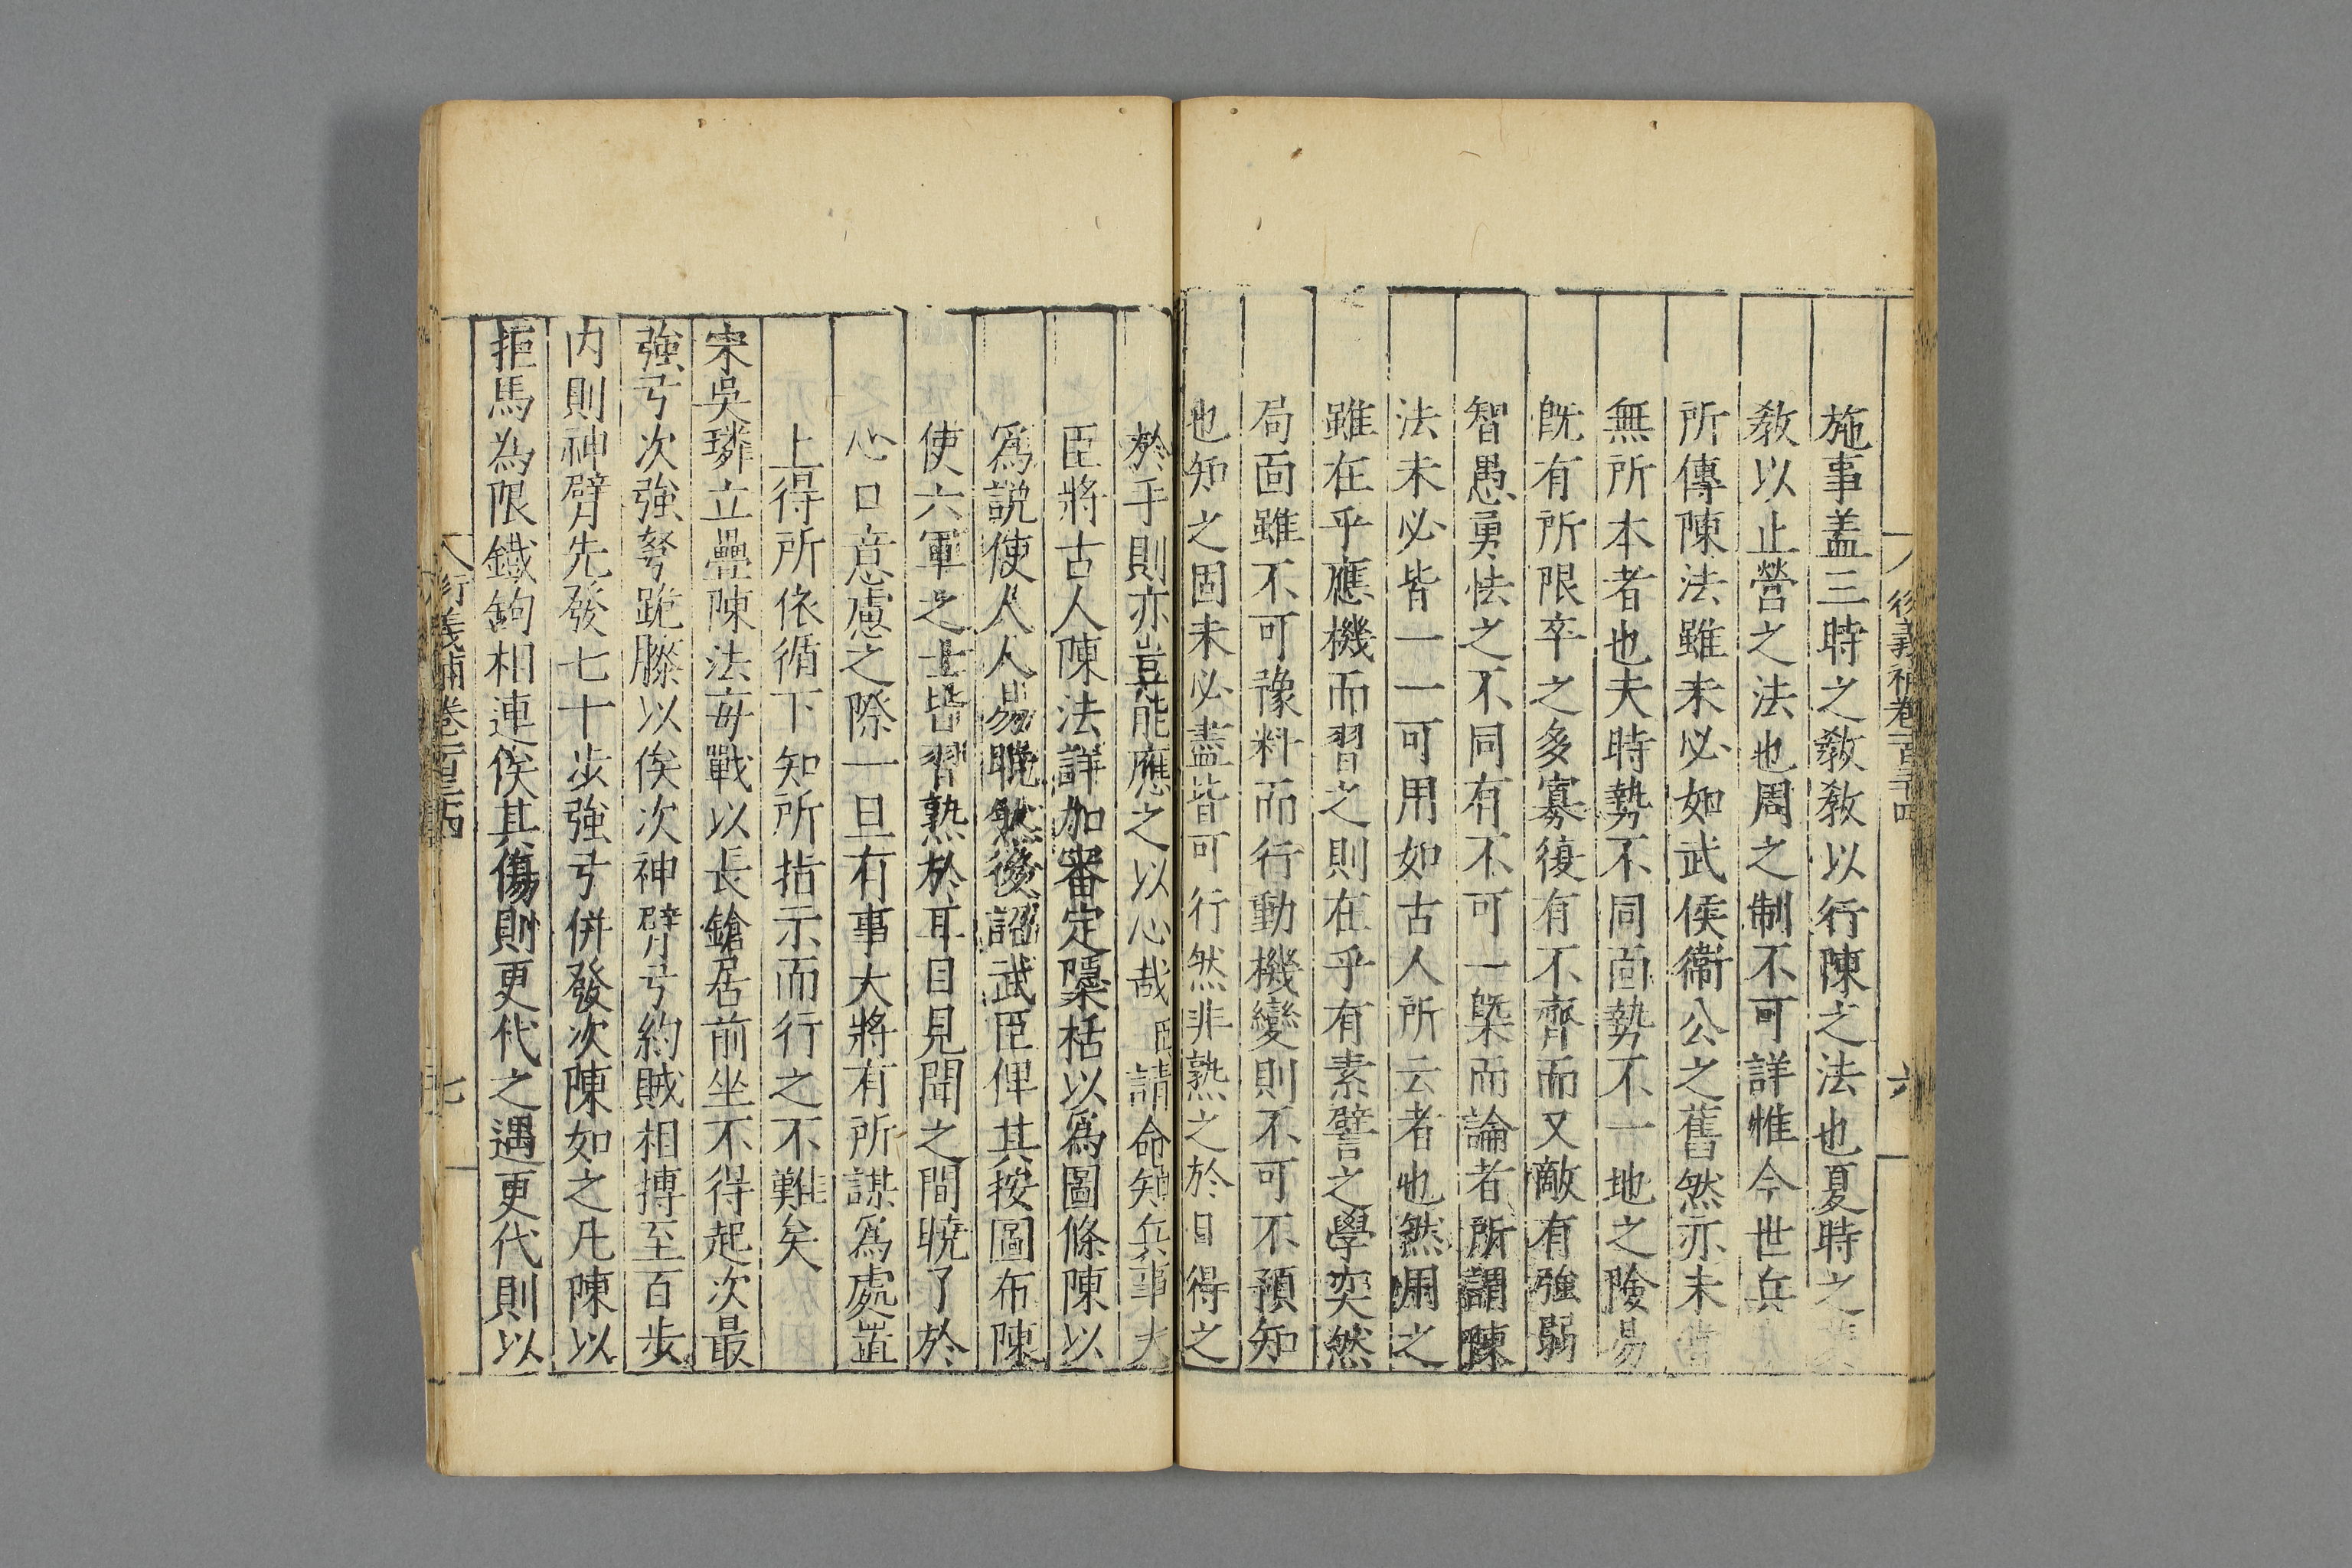 後義補卷一百三十四
六
施事盖三時之教教以行陳之法也夏時之
教以止營之法也周之制不可詳惟今世兵
所傳陳法雖未必如武侯衛公之舊然亦未
無所本者也夫時勢不同面勢不一地之險易
既有所限卒之多寡復有不齊而又敵有強弱
智愚勇怯之不同有不可一槩而論者所謂陳
法未必皆一一可用如古人所云者也然用之
雖在乎應機而習之則在乎有素譬之學奕然
局面雖不可豫料而行動機變則不可不預知
也知之固未必盡皆可行然非熟之於目得之
於手則亦豈能應之以心哉臣請命知兵事大
臣將古人陳法詳加審定檃栝以爲圖條陳以
爲説使人人易曉然後詔武臣俾其按圖布陳
使六軍之士皆習熟於耳目見聞之間曉了於
心口意慮之際一旦有事大將有所謀爲處置
上得所依循下知所指示而行之不難矣
宋吳璘立疊陳法毎戰以長鎗居前坐不得起次最
強弓次強弩跪膝以俟次神臂弓約賊相搏至百步
内則神臂先發七十步強弓併發次陳如之凡陳以
拒馬為限鐵鉤相連俟其傷則更代之遇更代則以
衍義補卷一百三十四
七